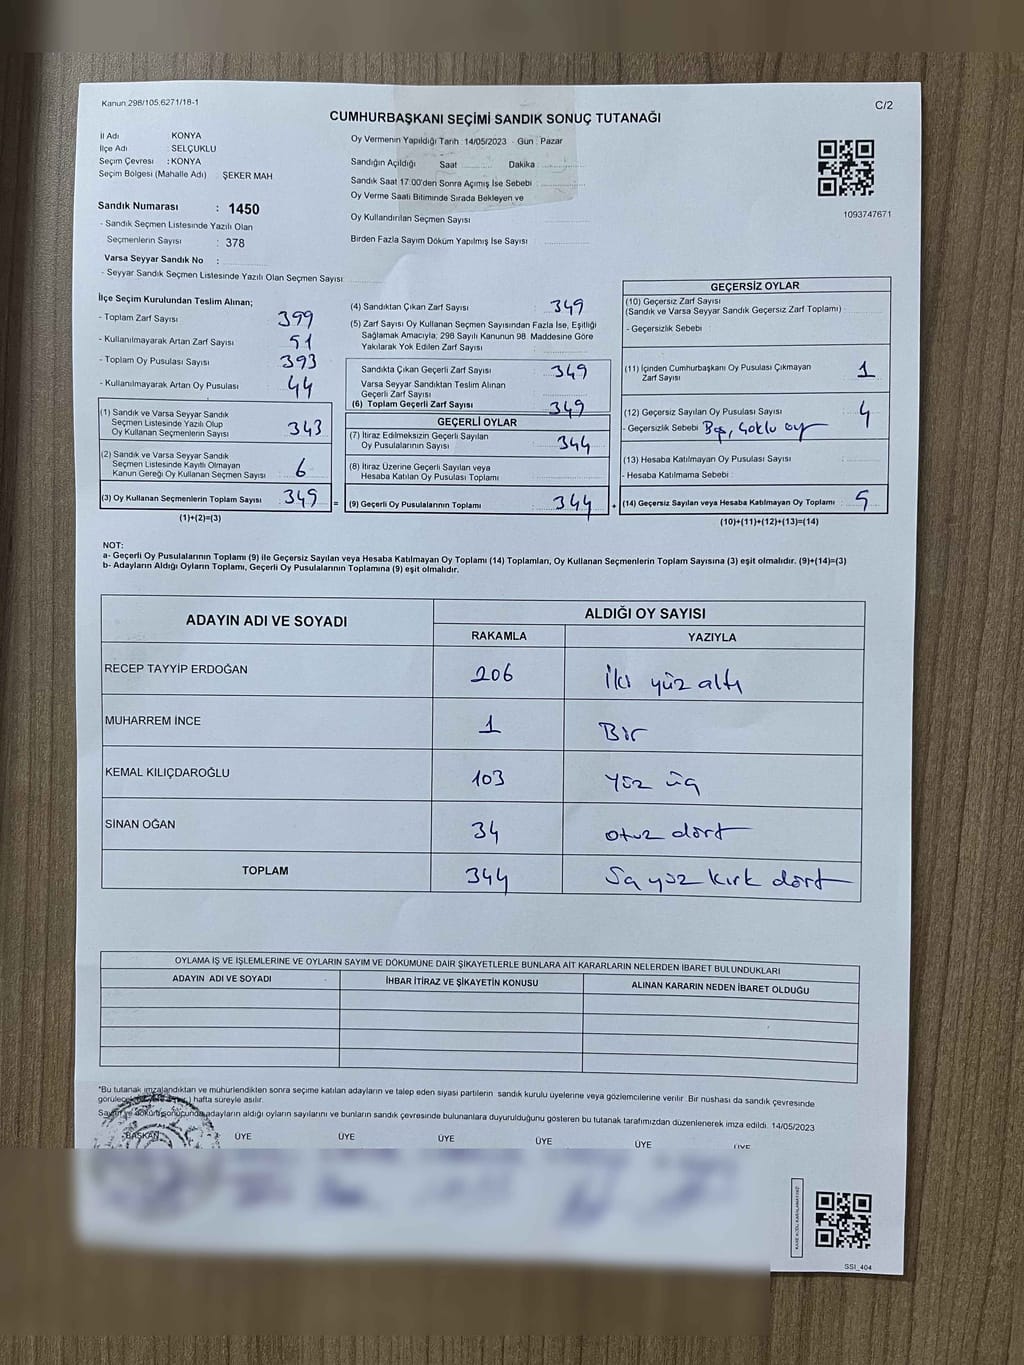 Kanun 298/105.6271/18-1
C/2
CUMHURBAŞKANI SEÇİMİ SANDIK SONUÇ TUTANAĞI
İl Adı KONYA
İlçe Adı : SELÇUKLU
Seçim Çevresi : KONYA
Seçim Bölgesi (Mahalle Adı) ŞEKER MAH
Sandık Numarası : 1450
- Sandık Seçmen Listesinde Yazılı Olan
Seçmenlerin Sayısı : 378
Varsa Seyyar Sandık No :
- Seyyar Sandık Seçmen Listesinde Yazılı Olan Seçmen Sayısı:
Oy Vermenin Yapıldığı Tarih : 14/05/2023 - Gün : Pazar
Sandığın Açıldığı Saat Dakika
Sandık Saat 17:00'den Sonra Açımış İse Sebebi
Oy Verme Saati Bitiminde Sırada Bekleyen ve
Oy Kullandırılan Seçmen Sayısı
Birden Fazla Sayım Döküm Yapılmış İse Sayısı :
1093747671
İlçe Seçim Kurulundan Teslim Alınan;
- Toplam Zarf Sayısı 399
- Kullanılmayarak Artan Zarf Sayısı 51
- Toplam Oy Pusulası Sayısı 393
- Kullanılmayarak Artan Oy Pusulası 44
(1) Sandık ve Varsa Seyyar Sandık
Seçmen Listesinde Yazılı Olup
Oy Kullanan Seçmenlerin Sayısı 343
(2) Sandık ve Varsa Seyyar Sandık
Seçmen Listesinde Kayıtlı Olmayan
Kanun Gereği Oy Kullanan Seçmen Sayısı 6
(3) Oy Kullanan Seçmenlerin Toplam Sayısı 349 =
(1)+(2)=(3)
(4) Sandıktan Çıkan Zarf Sayısı 349
(5) Zarf Sayısı Oy Kullanan Seçmen Sayısından Fazla İse, Eşitliği
Sağlamak Amacıyla; 298 Sayılı Kanunun 98. Maddesine Göre
Yakılarak Yok Edilen Zarf Sayısı
Sandıkta Çıkan Geçerli Zarf Sayısı 349
Varsa Seyyar Sandıktan Teslim Alınan
Geçerli Zarf Sayısı
(6) Toplam Geçerli Zarf Sayısı 349
GEÇERLİ OYLAR
(7) İtiraz Edilmeksizin Geçerli Sayılan
Oy Pusulalarının Sayısı 344
(8) İtiraz Üzerine Geçerli Sayılan veya
Hesaba Katılan Oy Pusulası Toplamı
(9) Geçerli Oy Pusulalarının Toplamı 344 +
GEÇERSİZ OYLAR
(10) Geçersiz Zarf Sayısı
(Sandık ve Varsa Seyyar Sandık Geçersiz Zarf Toplamı)
- Geçersizlik Sebebi :
(11) İçinden Cumhurbaşkanı Oy Pusulası Çıkmayan
Zarf Sayısı 1
(12) Geçersiz Sayılan Oy Pusulası Sayısı 4
- Geçersizlik Sebebi Boş, Çoklu oy
(13) Hesaba Katılmayan Oy Pusulası Sayısı
- Hesaba Katılmama Sebebi :
(14) Geçersiz Sayılan veya Hesaba Katılmayan Oy Toplamı 5
(10)+(11)+(12)+(13)=(14)
NOT:
a- Geçerli Oy Pusulalarının Toplamı (9) ile Geçersiz Sayılan veya Hesaba Katılmayan Oy Toplamı (14) Toplamları, Oy Kullanan Seçmenlerin Toplam Sayısına (3) eşit olmalıdır. (9)+(14)=(3)
b- Adayların Aldığı Oyların Toplamı, Geçerli Oy Pusulalarının Toplamına (9) eşit olmalıdır.
ADAYIN ADI VE SOYADI ALDIĞI OY SAYISI
RAKAMLA YAZIYLA
RECEP TAYYİP ERDOĞAN 206 İki yüz altı
MUHARREM İNCE 1 Bir
KEMAL KILIÇDAROĞLU 103 Yüz üç
SİNAN OĞAN 34 otuz dört
TOPLAM 344 kırk dört
OYLAMA İŞ VE İŞLEMLERİNE VE OYLARIN SAYIM VE DÖKÜMÜNE DAİR ŞİKAYETLERLE BUNLARA AİT KARARLARIN NELERDEN İBARET BULUNDUKLARI
ADAYIN ADI VE SOYADI İHBAR İTİRAZ VE ŞİKAYETİN KONUSU ALINAN KARARIN NEDEN İBARET OLDUĞU
*Bu tutanak imzalandıktan ve mühürlendikten sonra seçime katılan adayların ve talep eden siyasi partilerin sandık kurulu üyelerine veya gözlemcilerine verilir. Bir nüshası da sandık çevresinde
hafta süreyle asılır.
adayların aldığı oyların sayılarını ve bunların sandık çevresinde bulunanlara duyurulduğunu gösteren bu tutanak tarafımızdan düzenlenerek imza edildi. 14/05/2023
BAŞKAN ÜYE ÜYE ÜYE ÜYE ÜYE ÜYE
SSI_404